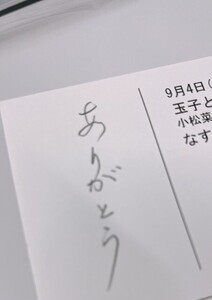 ありがとう
9月4日(
玉子と
小松菜
なす